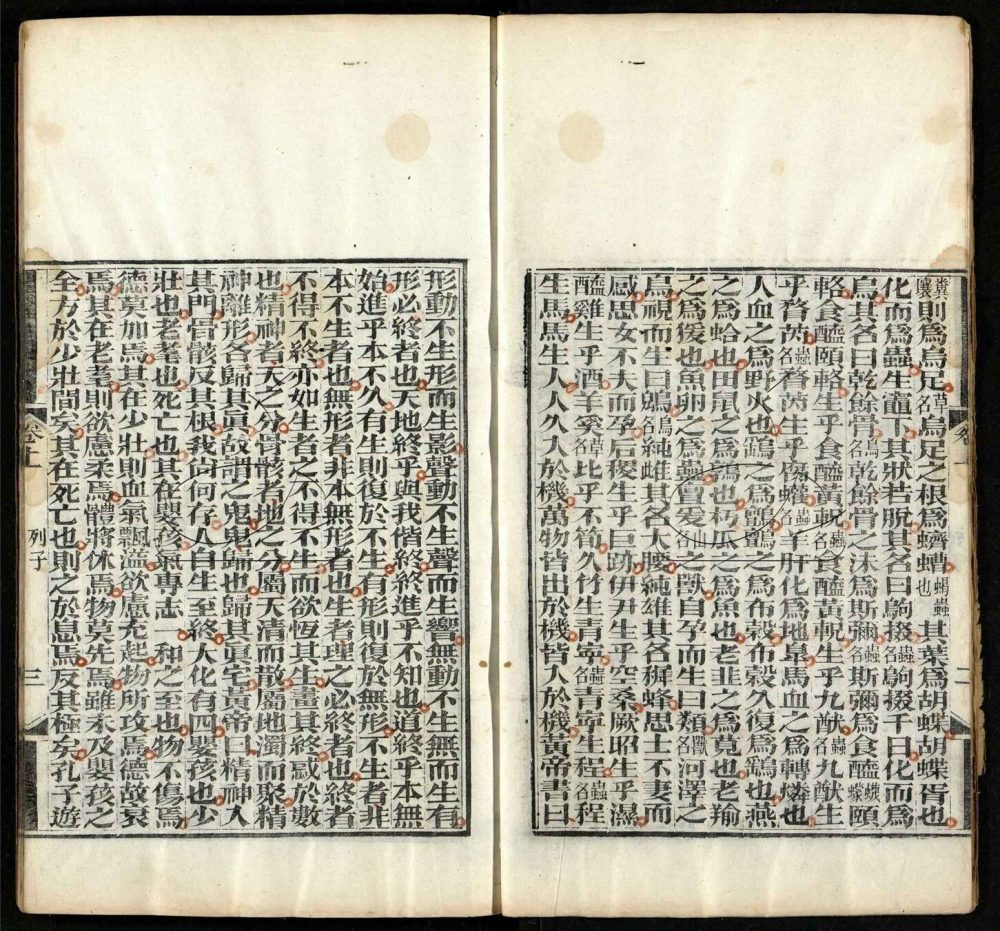 糞壤則爲烏足草名烏足之根爲蠐螬蝎蟲也其葉爲胡蝶胡蝶胥也
化而爲蟲生竈下其狀若脫其名曰鴝掇蟲名鴝掇千日化而爲
鳥其名曰乾餘骨鳥名乾餘骨之沫爲斯彌蟲名斯彌爲食醯蠛蠓頤
輅食醯頤輅生乎食醯黃軦蟲名食醯黃軦生乎九猷蟲名九猷生
乎瞀芮蟲名瞀芮生乎腐蠸蟲名羊肝化爲地臯馬血之爲轉燐也
人血之爲野火也鷂之爲鸇鸇之爲布穀布穀久復爲鷂也燕
之爲蛤也田鼠之爲鶉也朽瓜之爲魚也老韭之爲莧也老羭
之爲猨也魚卵之爲蟲亶爰山名之獸自孕而生曰類獸名河澤之
鳥視而生曰鶂鳥名純雌其名大腰純雄其名稺蜂思士不妻而
感思女不夫而孕后稷生乎巨跡伊尹生乎空桑厥昭生乎濕
醯雞生乎酒羊奚草名比乎不筍久竹生青寧蟲名青寧生程蟲名程
生馬馬生人人久入於機萬物皆出於機皆入於機黃帝書曰
形動不生形而生影聲動不生聲而生響無動不生無而生有
形必終者也天地終乎與我偕終終進乎不知也道終乎本無
始進乎本不久有生則復於不生有形則復於無形不生者非
本不生者也無形者非本無形者也生者理之必終者也終者
不得不終亦如生者之不得不生而欲恆其生畫其終惑於數
也精神者天之分骨骸者地之分屬天清而散屬地濁而聚精
神離形各歸其眞故謂之鬼鬼歸也歸其眞宅黃帝曰精神入
其門骨骸反其根我尙何存人自生至終大化有四嬰孩也少
壯也老耄也死亡也其在嬰孩氣專志一和之至也物不傷焉
德莫加焉其在少壯則血氣飄溢欲慮充起物所攻焉德故衰
焉其在老耄則欲慮柔焉體將休焉物莫先焉雖未及嬰孩之
全方於少壯間矣其在死亡也則之於息焉反其極矣孔子遊
卷上 列子 三